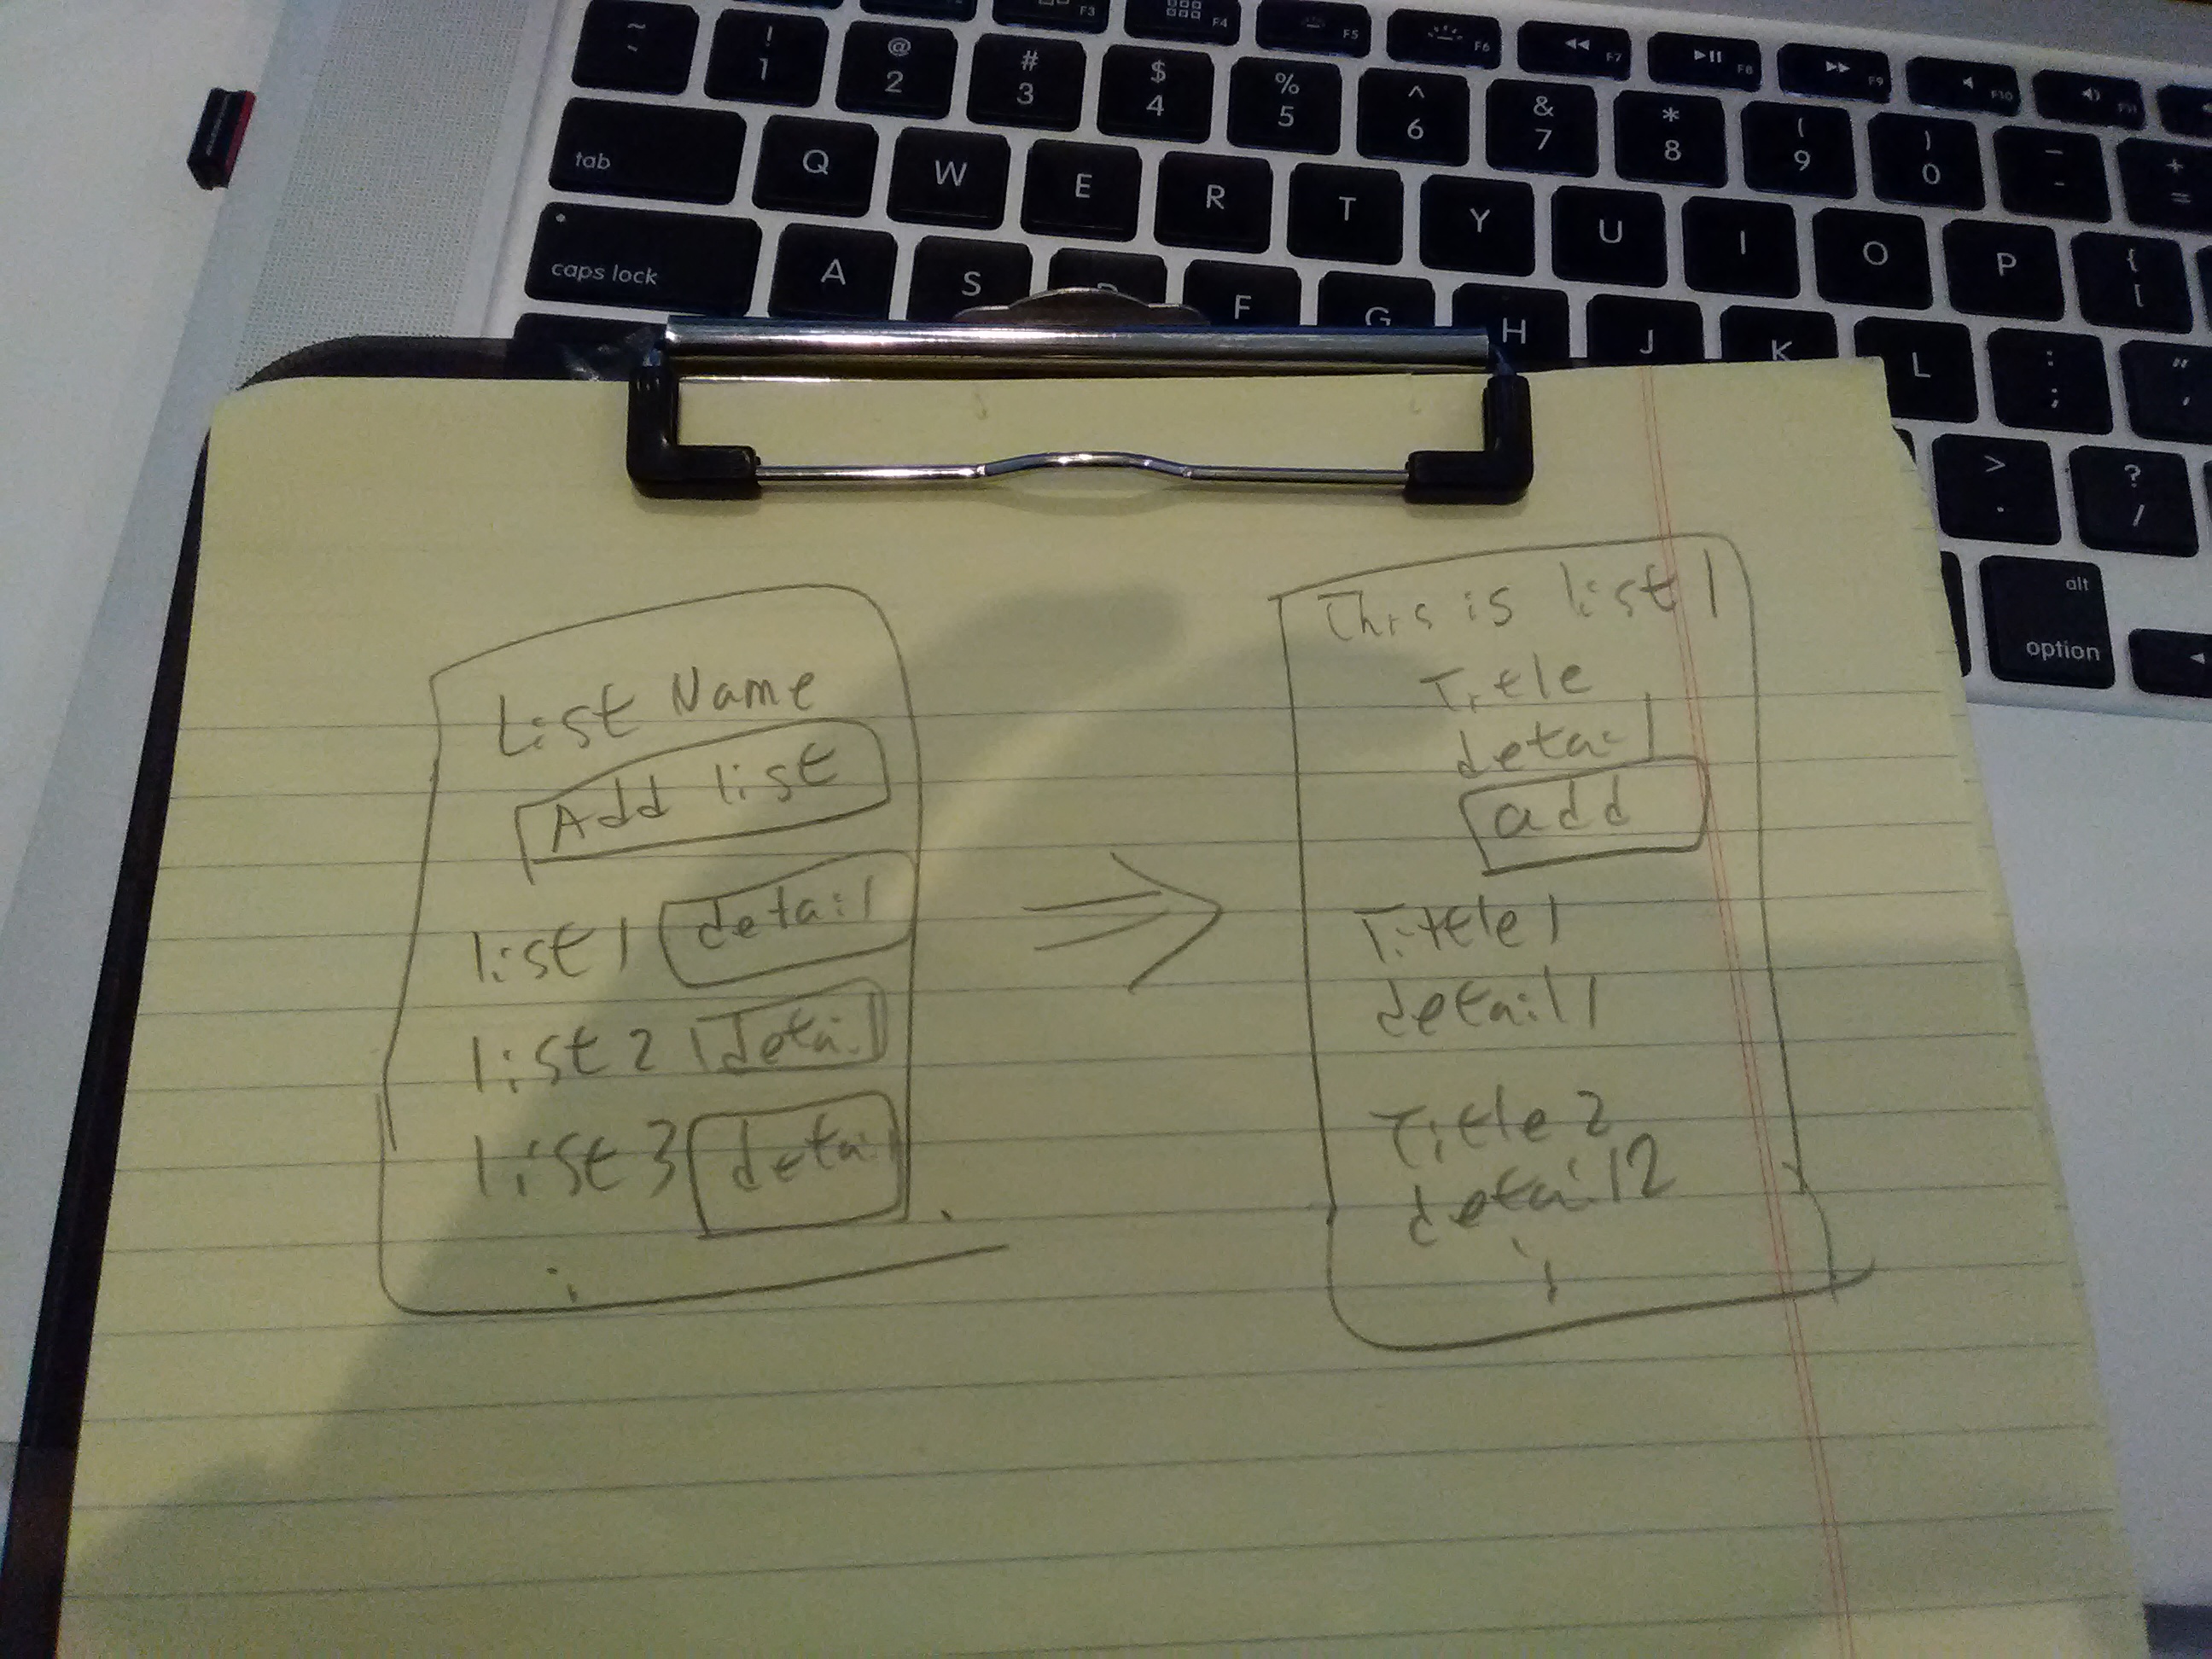 ~
`
! 1
@ 2
# 3
$ 4
% 5
^ 6
& 7
* 8
( 9
) 0
- 
+ =
F3
F4
F5
F6
F7
F8
F9
F10
F11
tab
Q W E R T Y U I O P { [
caps lock
A S D F G H J K L : ; " '
> .
? /
alt
option
List Name
Add list
list1 detail
list2 detail
list3 detail
This is list1
Title
detail
add
Title1
detail1
Title2
detail2